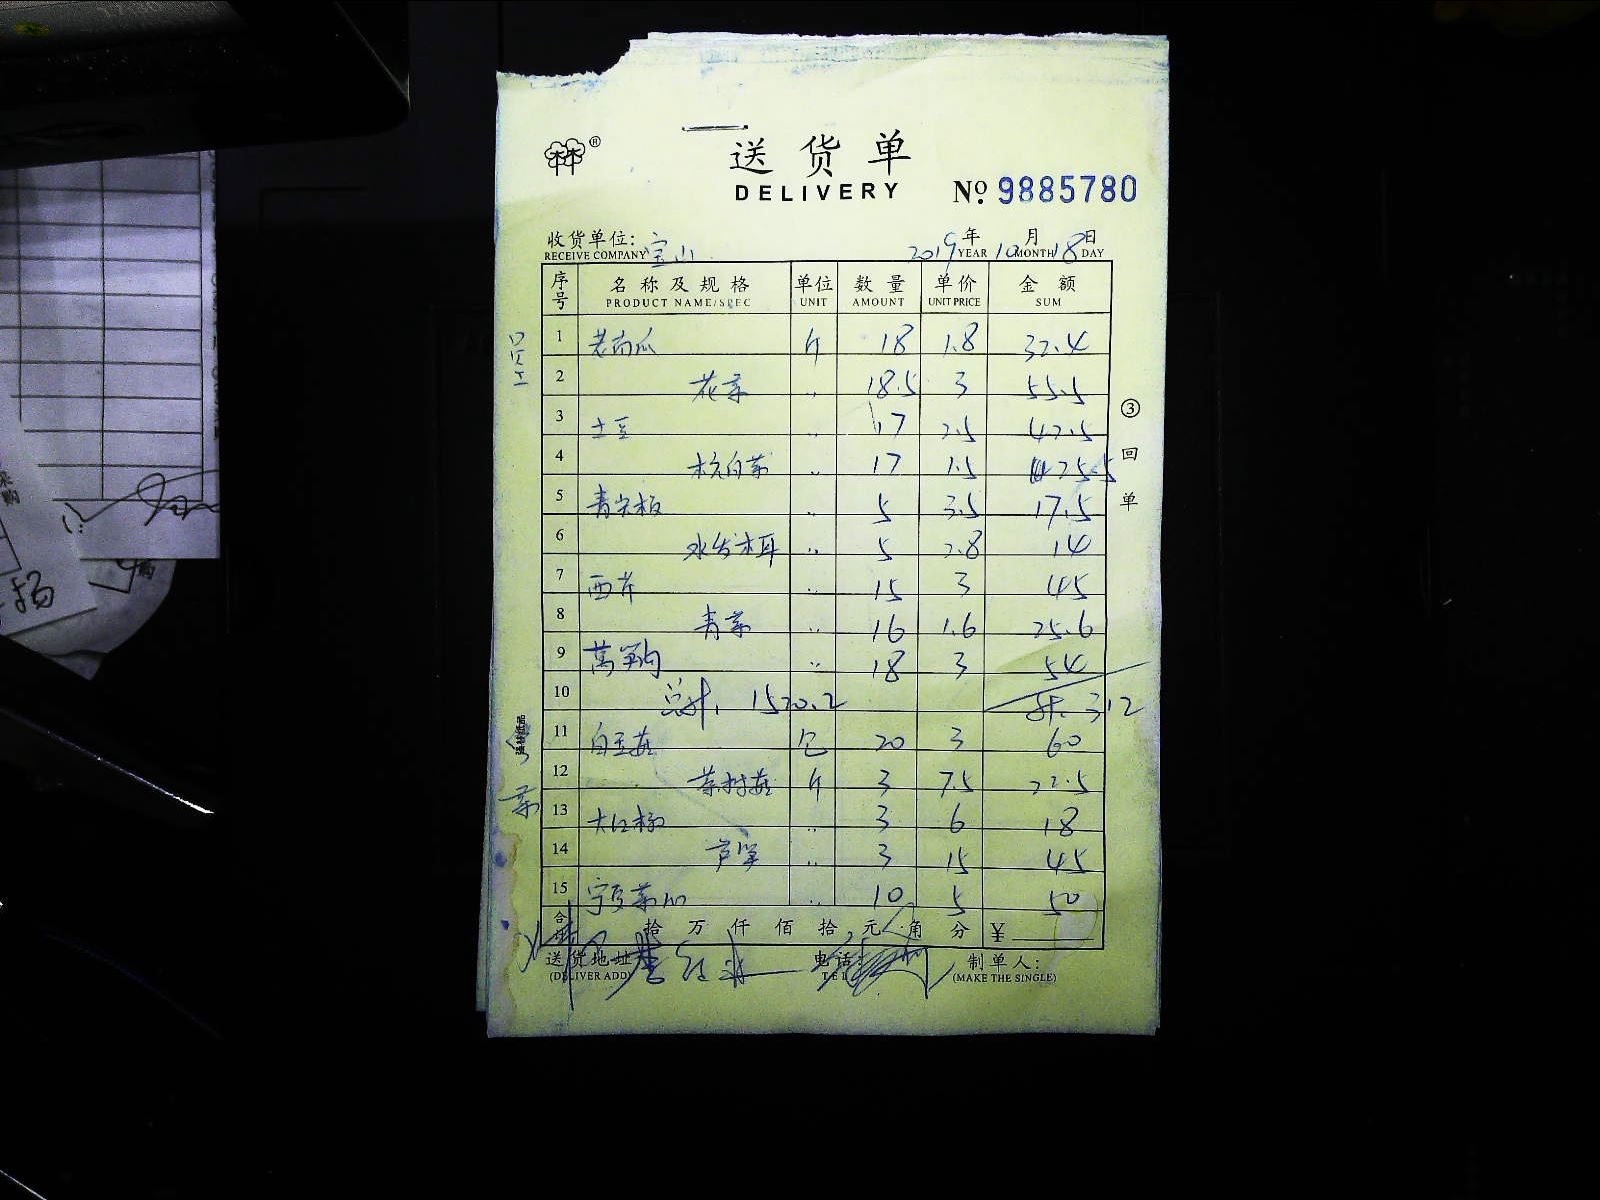 送货单
DELIVERY
No. 9885780
收货单位: 宝山 2019年 10月 18日
RECEIVE COMPANY YEAR MONTH DAY
序号 名称及规格 单位 数量 单价 金额
PRODUCT NAME/SPEC UNIT AMOUNT UNIT PRICE SUM
1 老南瓜 斤 18 1.8 32.4
2 花菜 〃 18.5 3 55.5
3 土豆 〃 17 2.5 42.5
4 杭白菜 〃 17 1.5 25.5
5 青尖椒 〃 5 3.5 17.5
6 水发木耳 〃 5 2.8 14
7 西芹 〃 15 3 45
8 青菜 〃 16 1.6 25.6
9 莴笋 〃 18 3 54
10 总计: 1520.2 计: 312
11 白玉菇 包 20 3 60
12 茶树菇 斤 3 7.5 22.5
13 大红椒 〃 3 6 18
14 芦笋 〃 3 15 45
15 宁夏菜心 〃 10 5 50
合计 拾 万 仟 佰 拾 元 角 分 ¥
送货地址 电话: 制单人:
(DELIVER ADD) TEL (MAKE THE SINGLE)
③回单
员工
菜
采购